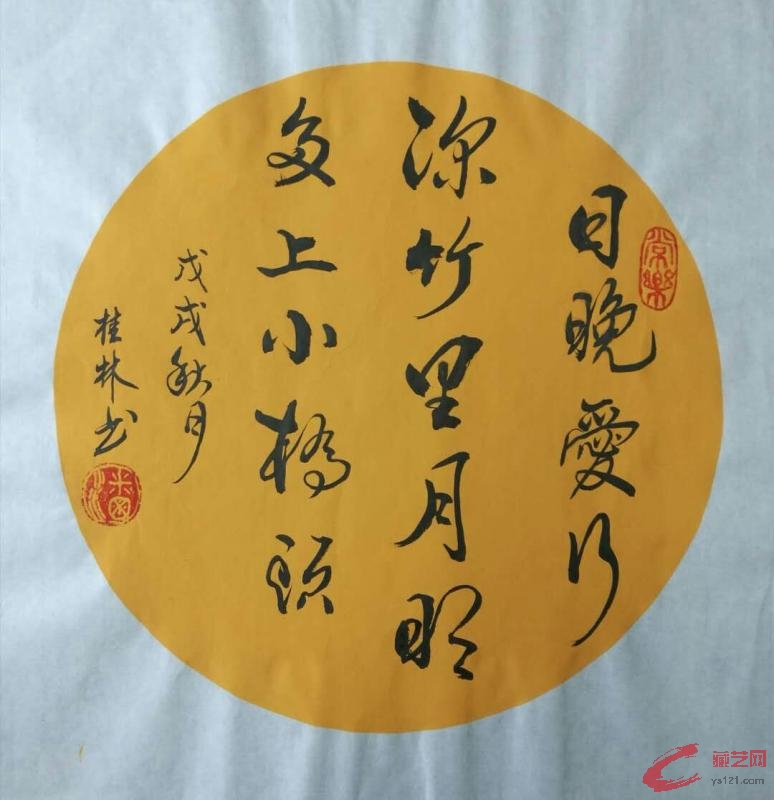 日晚愛行
深竹里月明
多上小橋頭
戊戌秋月
桂林书
常樂
潘
藏艺网
ys121.com